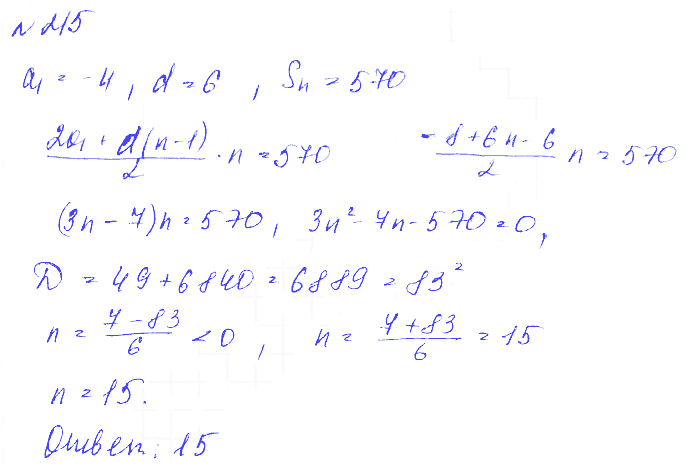 № 215
a₁ = -4, d = 6, Sₙ = 570
(2a₁ + d(n-1))/2 · n = 570    (-8+6n-6)/2 n = 570
(3n - 7)n = 570, 3n² - 7n - 570 = 0,
D = 49 + 6840 = 6889 = 83²
n = (7-83)/6 < 0, n = (7+83)/6 = 15
n = 15.
Ответ: 15